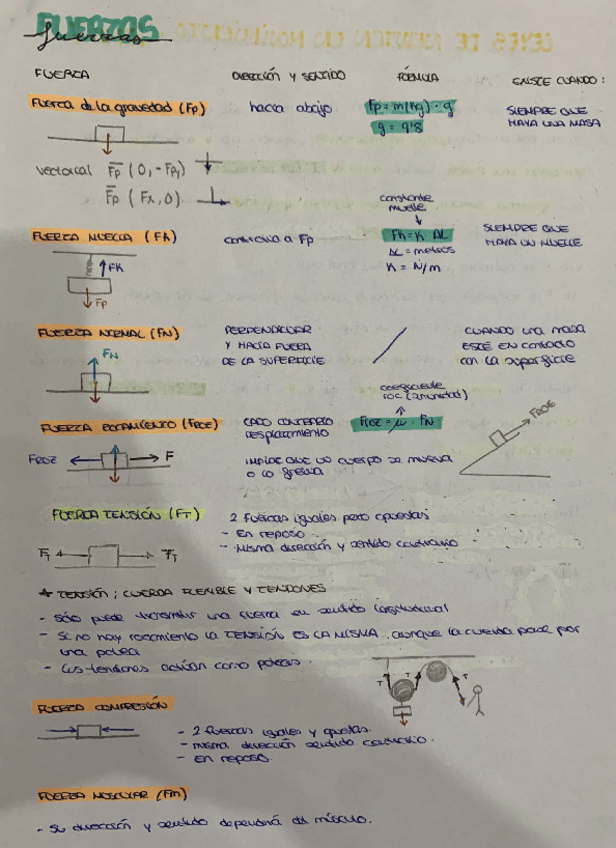 FUERZAS
fuerzas
FUERZA DIRECCIÓN Y SENTIDO FÓRMULA EXISTE CUANDO:
Fuerza de la gravedad (Fp) hacia abajo Fp = m(kg) · g SIEMPRE QUE
g = 9'8 HAYA UNA MASA
vectorial Fp (0, -Fp,)
Fp (Fx, 0)
constante
muelle
FUERZA MUELLE (FK) contrario a Fp FK = K · ΔL SIEMPRE QUE
ΔL = metros HAYA UN MUELLE
K = N/m
FK
Fp
FUERZA NORMAL (FN) PERPENDICULAR CUANDO UNA MASA
Y HACIA FUERA ESTÉ EN CONTACTO
DE LA SUPERFICIE con la superficie
FN
coeficiente
roc (
FUERZA ROZAMIENTO (FROZ) LADO CONTRARIO FROZ = μ · FN
desplazamiento
FROZ
FROZ F IMPIDE QUE UN CUERPO SE MUEVA
o lo frena
FUERZA TENSIÓN (FT) 2 fuerzas iguales pero opuestas
- EN REPOSO
- Misma dirección y sentido contrario
FT FT
* TENSIÓN; CUERDA FLEXIBLE Y TENDONES
- Sólo puede transmitir una fuerza en sentido longitudinal
- Si no hay rozamiento la TENSIÓN ES LA MISMA, aunque la cuerda pase por
una polea
- Los tendones actúan como poleas.
T T T
FUERZA COMPRESIÓN
- 2 fuerzas iguales y opuestas.
- misma dirección sentido contrario.
- En reposo.
FUERZA MUSCULAR (Fm)
- Su dirección y sentido dependerá del músculo.